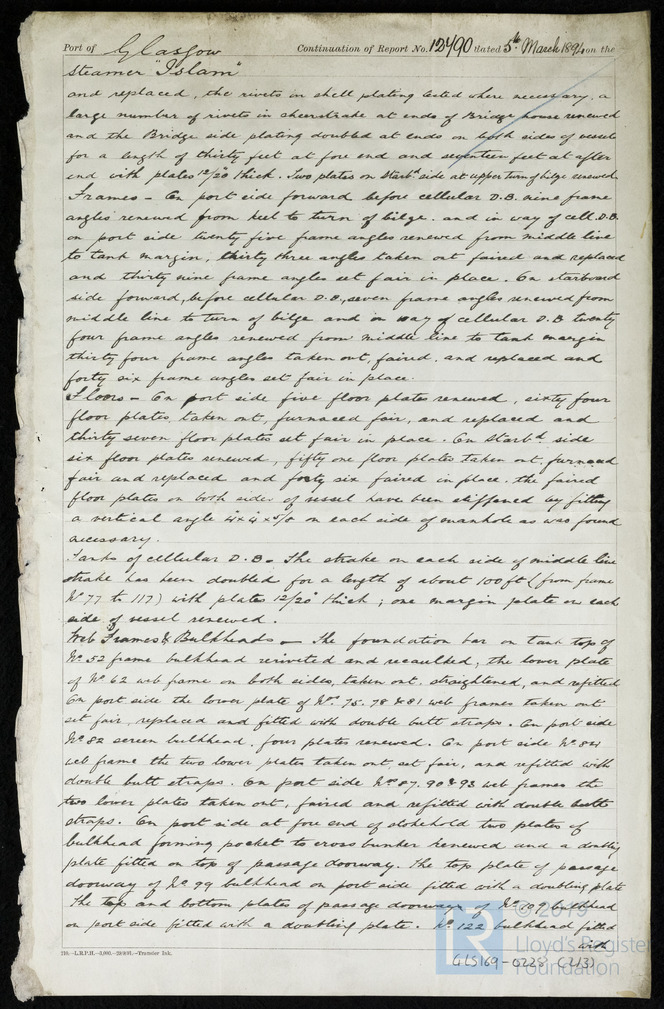 Port of Glasgow Continuation of Report No. 12490 dated 5th March 1894 on the
Steamer "Islam"
and replaced, the rivets in shell plating tested where necessary, a
large number of rivets in sheerstrake at ends of Bridge house renewed
and the Bridge side plating doubled at ends on both sides of vessel
for a length of thirty feet at fore end and seventeen feet at after
end with plates 12/20 thick. Two plates on Starbd side at upper turn of bilge renewed
Frames - On port side forward before cellular D.B. nine frame
angles renewed from keel to turn of bilge. and in way of cell. D.B.
on port side twenty five frame angles renewed from middle line
to tank margin; thirty three angles taken out faired and replaced
and thirty nine frame angles set fair in place. On starboard
side forward, before cellular D.B., seven frame angles renewed from
middle line to turn of bilge and in way of cellular D.B twenty
four frame angles renewed from middle line to tank margin
thirty four frame angles taken out, faired. and replaced and
forty six frame angles set fair in place.
Floors - On port side five floor plates renewed, sixty four
floor plates, taken out, furnaced fair, and replaced and
thirty seven floor plates set fair in place. On Starbd side
six floor plates renewed, fifty one floor plates taken out, furnaced
fair and replaced and forty six faired in place. the faired
floor plates on both sides of vessel have been stiffened by fitting
a vertical angle 4 x 4 x on each side of manhole as was found
necessary.
Tanks of cellular D.B. - The strake on each side of middle line
strake has been doubled for a length of about 100 ft (from frame
No 77 to 117) with plates 12/20" thick; one margin plate on each
side of vessel renewed.
Web Frames & Bulkheads - The foundation bar on tank top of
No. 52 frame bulkhead reriveted and recaulked, the lower plate
of No 62 web frame on both sides, taken out. straightened, and refitted
On port side the lower plate of Nos. 75. 78 & 81 web frames taken out
set fair, replaced and fitted with double butt straps. On port side
No. 82 screen bulkhead, four plates renewed. On port side No. 84
web frame the two lower plates taken out, set fair, and refitted with
double butt straps. On port side Nos 87. 90 & 93 web frames the
two lower plates taken out, faired and refitted with double butt
straps. On port side at fore end of stokehold two plates of
bulkhead forming pocket to cross bunker renewed and a doubling
plate fitted on top of passage doorway. The top plate of passage
doorway of No. 99 bulkhead on port side fitted with a doubling plate
The top and bottom plates of passage doorways of No. 109 bulkhead
on port side fitted with a doubling plate. No. 122 bulkhead fitted
with
210.-L.R.P.H.-3,000.-29/8/91.-Transfer Ink.
© 2019
Lloyd's Register
Foundation
GLS169-0228 (2/3)